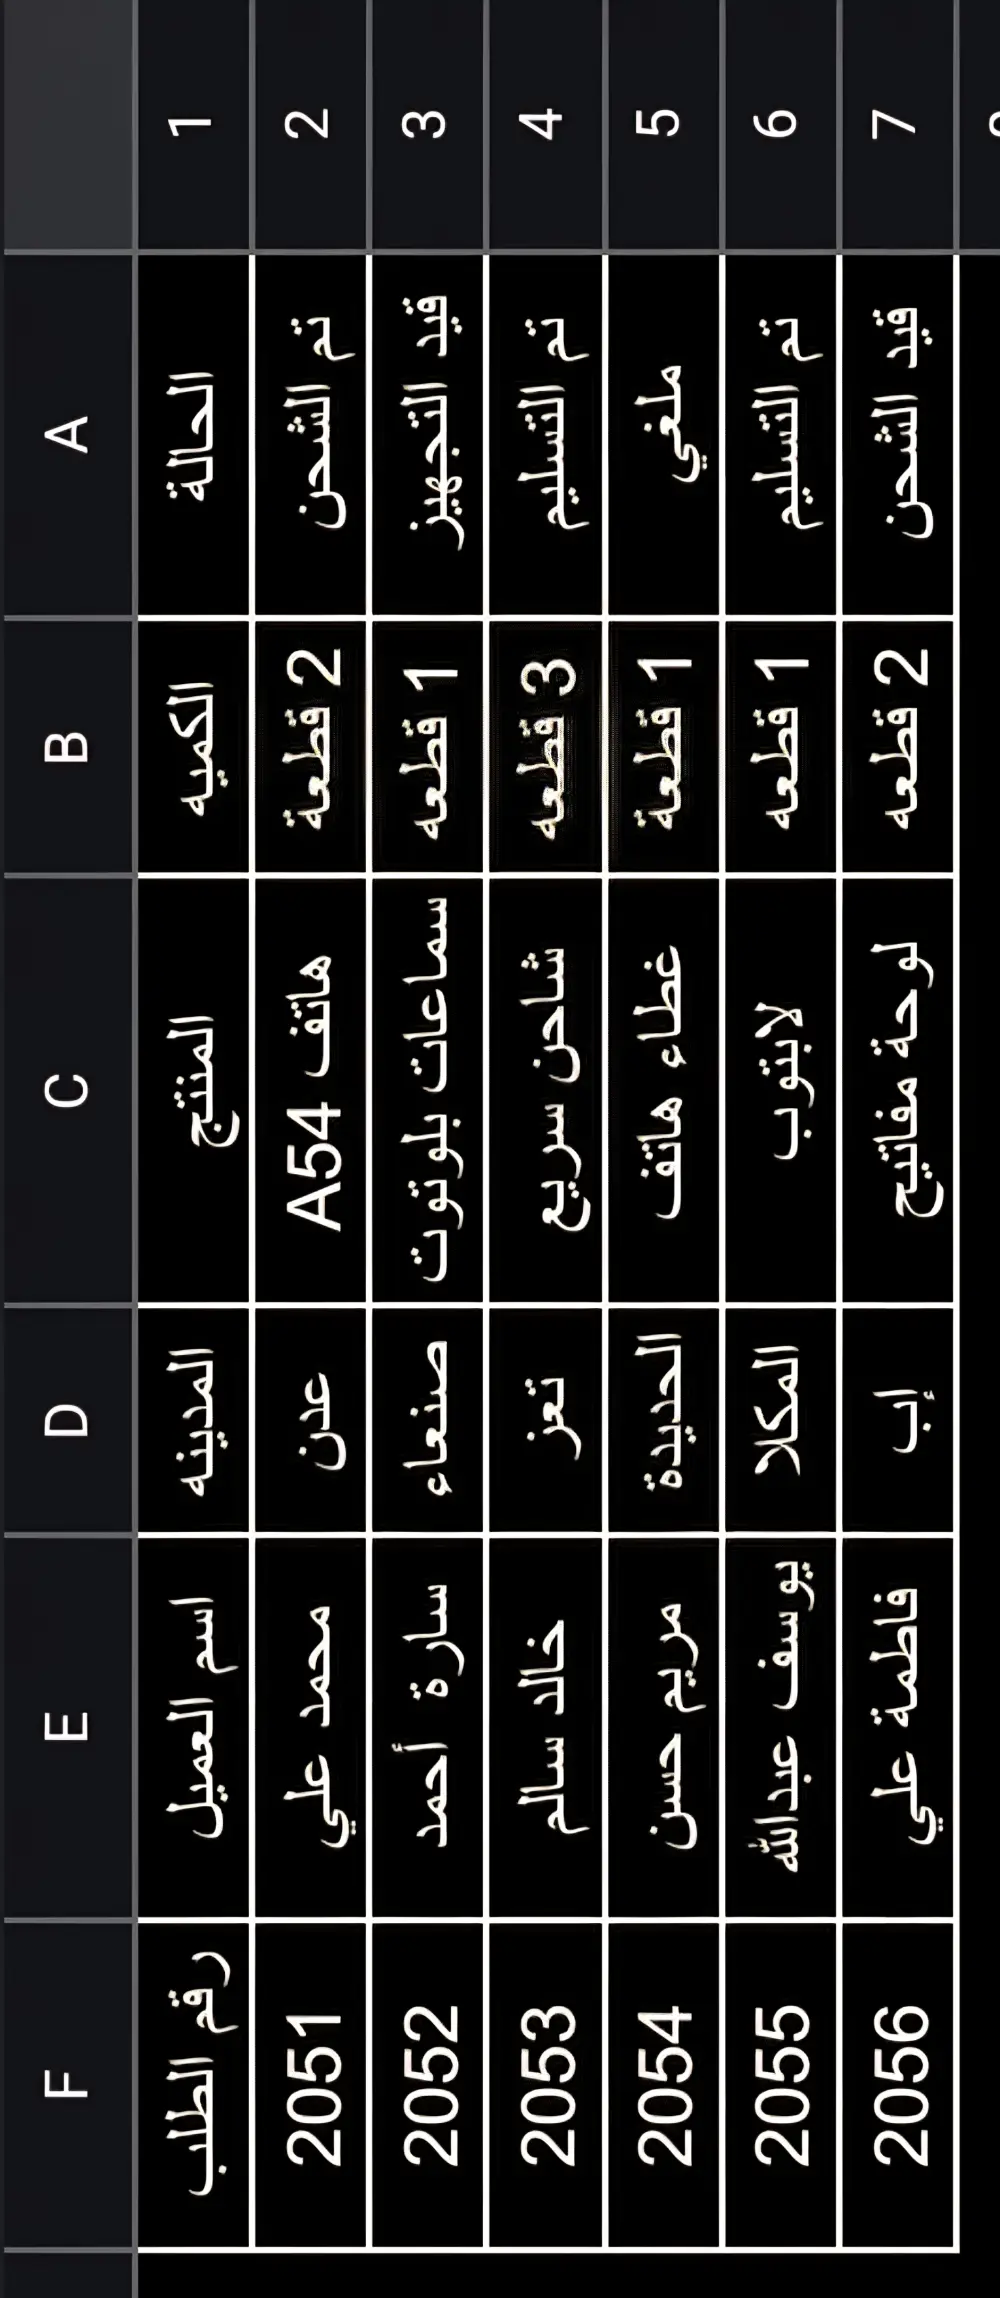 A B C D E F
1 الحالة الكميه المنتج المدينه اسم العميل رقم الطلب
2 تم الشحن 2 قطعة هاتف A54 عدن محمد علي 2051
3 قيد التجهيز 1 قطعه سماعات بلوتوت صنعاء سارة أحمد 2052
4 تم التسليم 3 قطعه شاحن سريع تعز خالد سالم 2053
5 ملغي 1 قطعة غطاء هاتف الحديدة مريم حسن 2054
6 تم التسليم 1 قطعه لابتوب المكلا يوسف عبدالله 2055
7 قيد الشحن 2 قطعه لوحة مفاتيح إب فاطمة علي 2056